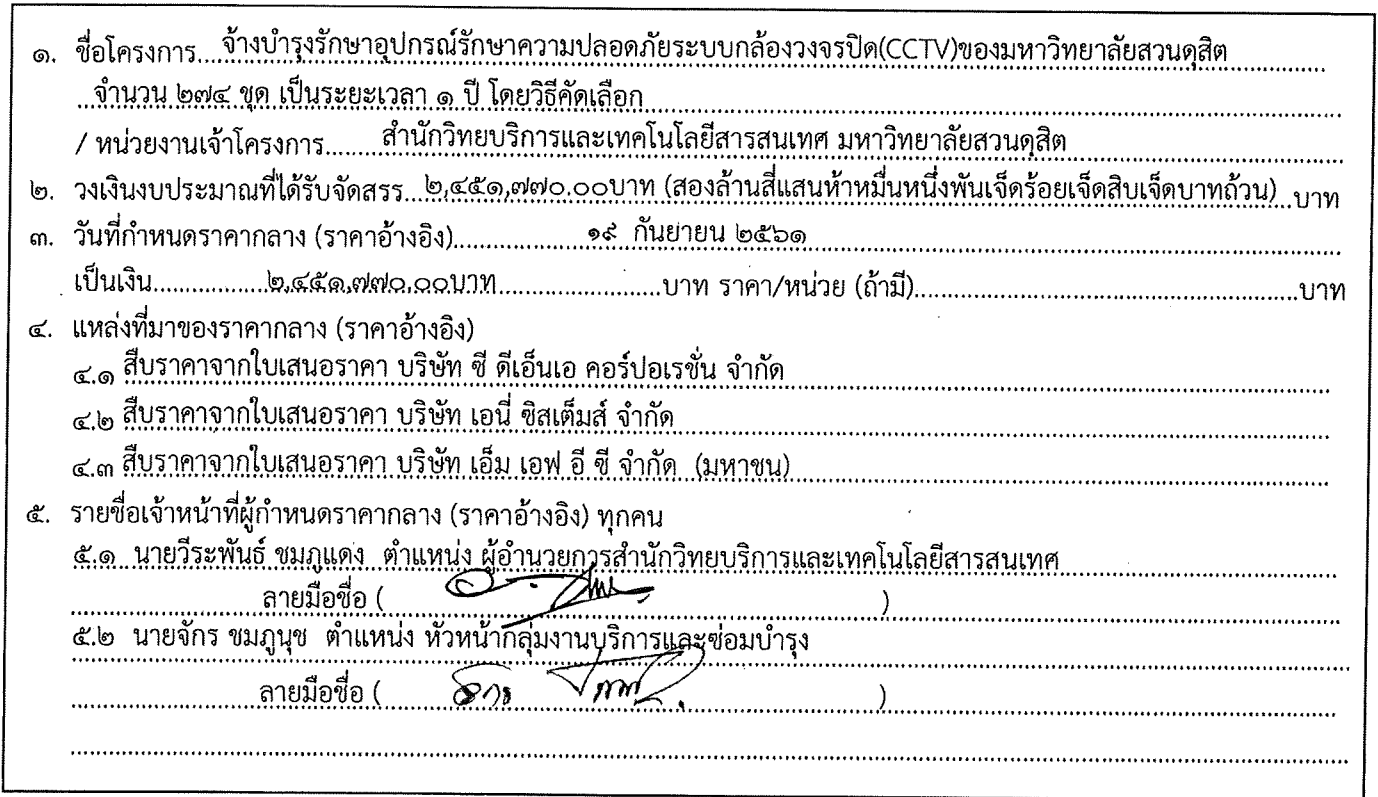 ๑. ชื่อโครงการ....จ้างบำรุงรักษาอุปกรณ์รักษาความปลอดภัยระบบกล้องวงจรปิด(CCTV)ของมหาวิทยาลัยสวนดุสิต
จำนวน ๒๗๔ ชุด เป็นระยะเวลา ๑ ปี โดยวิธีคัดเลือก
/ หน่วยงานเจ้าโครงการ........สำนักวิทยบริการและเทคโนโลยีสารสนเทศ มหาวิทยาลัยสวนดุสิต
๒. วงเงินงบประมาณที่ได้รับจัดสรร...๒,๔๕๑,๗๗๐.๐๐บาท (สองล้านสี่แสนห้าหมื่นหนึ่งพันเจ็ดร้อยเจ็ดสิบเจ็ดบาทถ้วน)..บาท
๓. วันที่กำหนดราคากลาง (ราคาอ้างอิง)....................๑๙ กันยายน ๒๕๖๑
เป็นเงิน.................๒,๔๕๑,๗๗๐.๐๐บาท........................บาท ราคา/หน่วย (ถ้ามี)........................................................บาท
๔. แหล่งที่มาของราคากลาง (ราคาอ้างอิง)
๔.๑ สืบราคาจากใบเสนอราคา บริษัท ซี ดีเอ็นเอ คอร์ปอเรชั่น จำกัด
๔.๒ สืบราคาจากใบเสนอราคา บริษัท เอนี่ ซิสเต็มส์ จำกัด
๔.๓ สืบราคาจากใบเสนอราคา บริษัท เอ็ม เอฟ อี ซี จำกัด (มหาชน)
๕. รายชื่อเจ้าหน้าที่ผู้กำหนดราคากลาง (ราคาอ้างอิง) ทุกคน
๕.๑ นายวีระพันธ์ ชมภูแดง ตำแหน่ง ผู้อำนวยการสำนักวิทยบริการและเทคโนโลยีสารสนเทศ
ลายมือชื่อ ( )
๕.๒ นายจักร ชมภูนุช ตำแหน่ง หัวหน้ากลุ่มงานบริการและซ่อมบำรุง
ลายมือชื่อ ( )